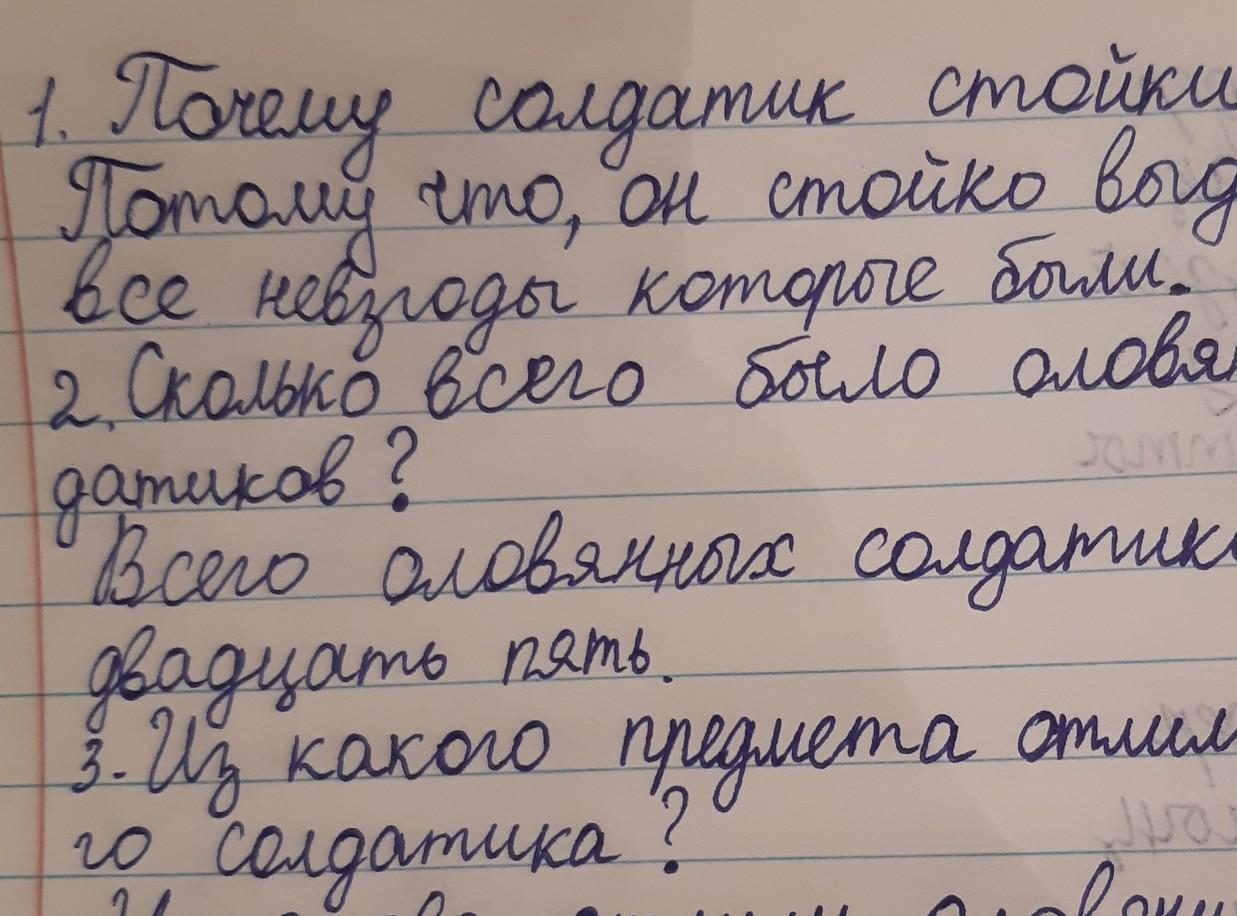 1. Почему солдатик стойки
Потому что, он стойко выд
все невзгоды которые были.
2. Сколько всего было оловян
датиков?
Всего оловянных солдатико
двадцать пять.
3. Из какого предмета отлил
го солдатика?